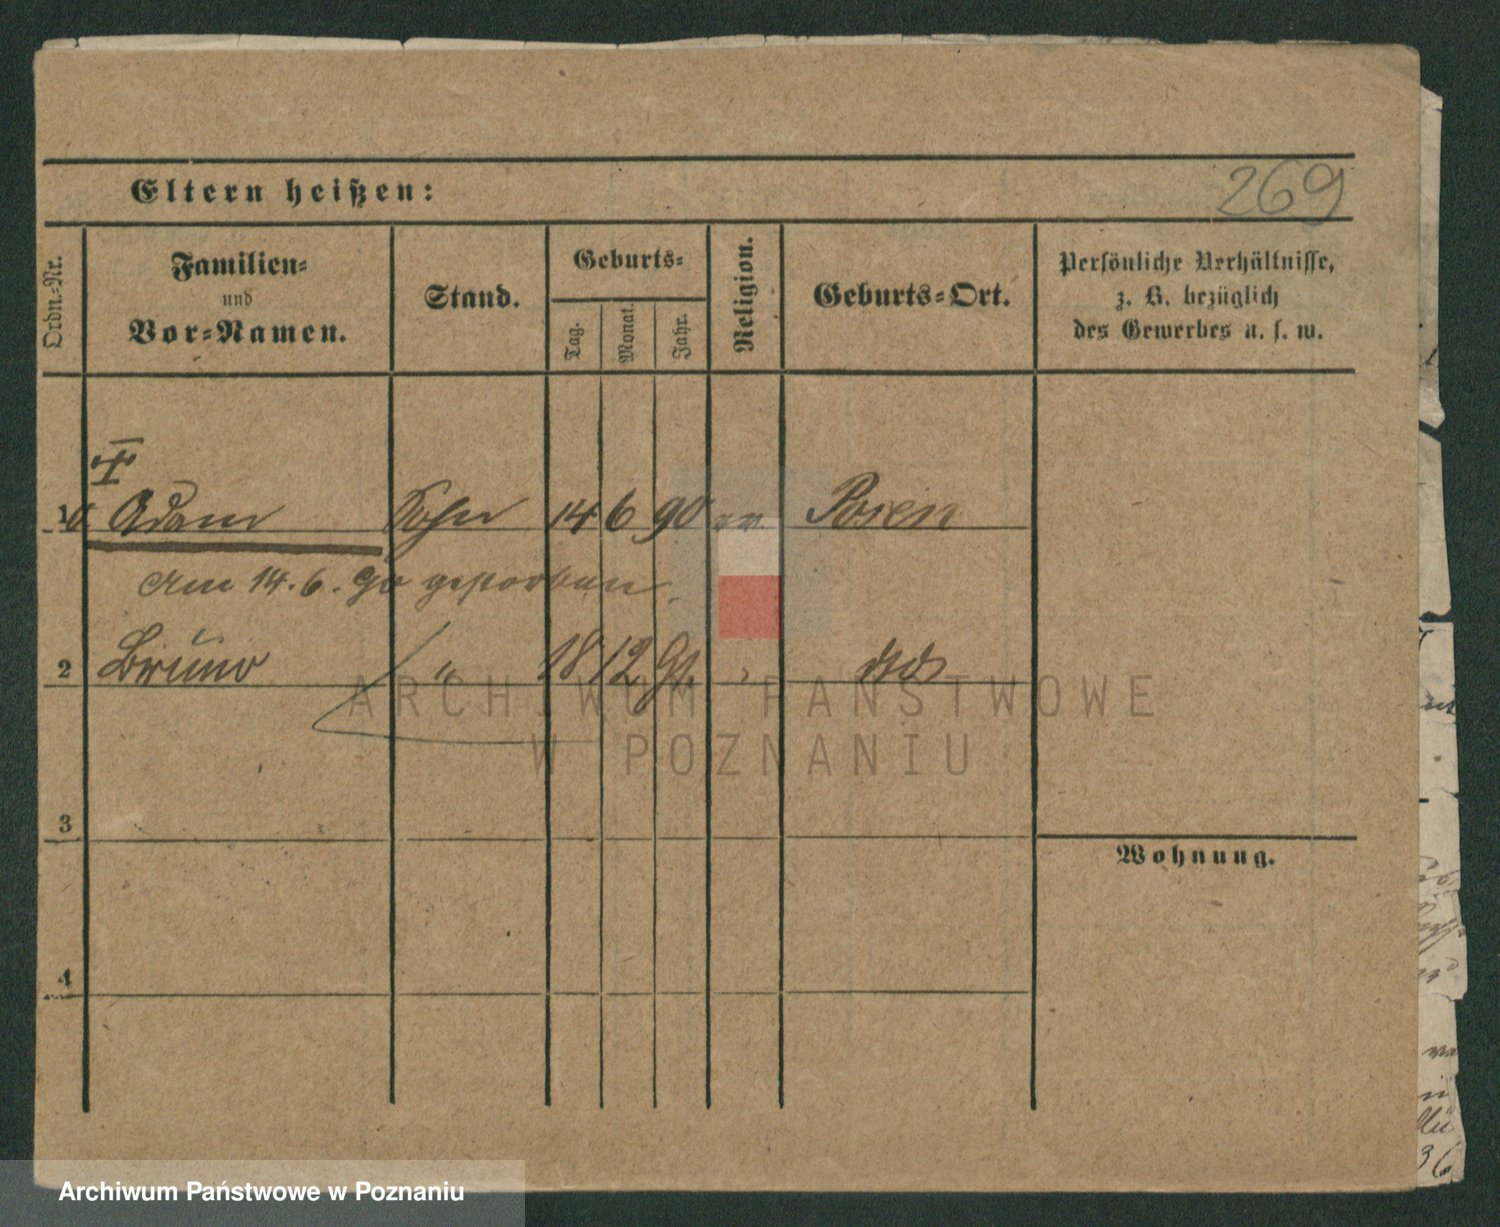 269
Eltern heißen:
Ordn.-Nr.
Familien-
und
Vor-Namen.
Stand.
Geburts-
Tag.
Monat.
Jahr.
Religion.
Geburts-Ort.
Persönliche Verhältnisse,
z. B. bezüglich
des Gewerbes u. s. w.
1 Adam Sohn 14 6 90 Posen
Am 14.6.90 gestorben.
2 Bruno " 18 12 91 dto
ARCHIWUM PAŃSTWOWE
W POZNANIU
3
Wohnung.
4
Archiwum Państwowe w Poznaniu